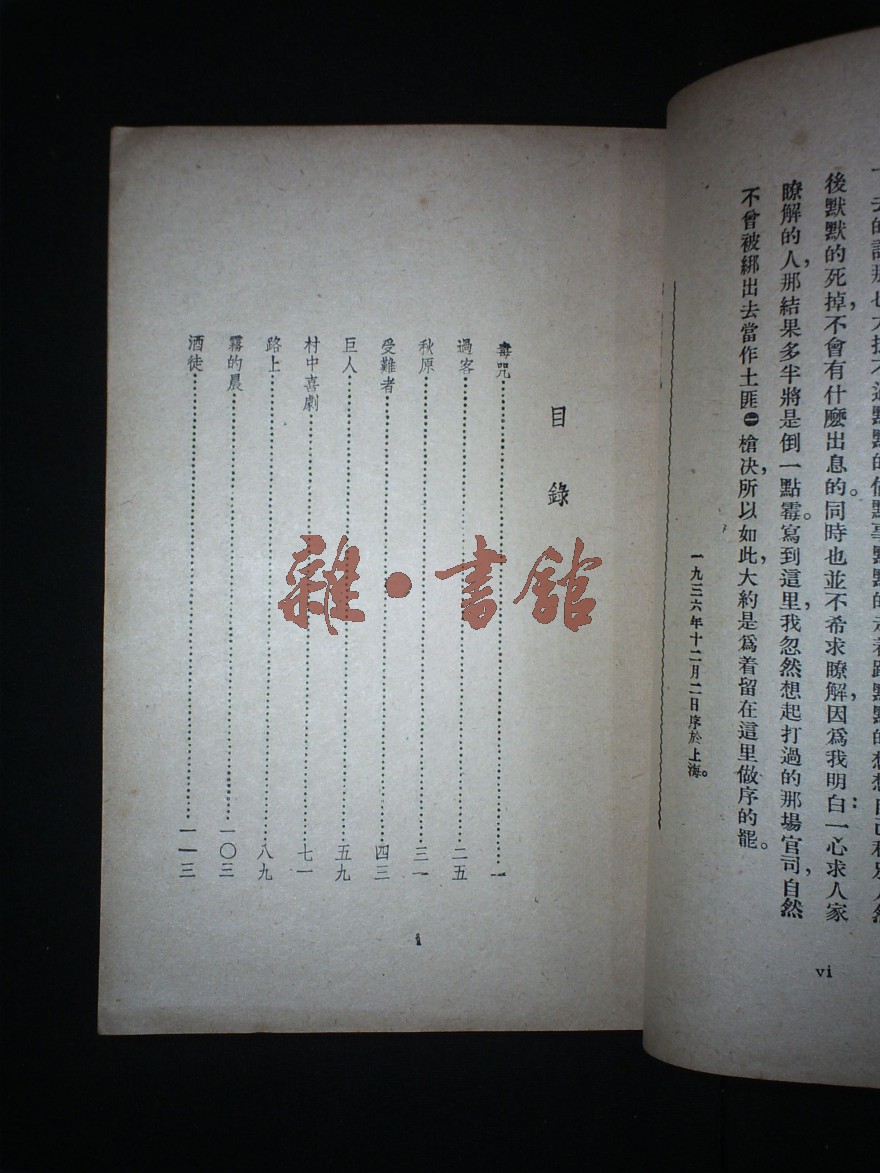 後默默的死掉，不會有什麼出息的。同時也並不希求瞭解，因爲我明白：一心求人家
瞭解的人，那結果多半將是倒一點霉。寫到這里，我忽然想起打過的那場官司，自然
不曾被綁出去當作土匪㊀槍決，所以如此，大約是爲着留在這里做序的罷。
一九三六年十二月二日序於上海。
vi
目錄
毒咒……………一
過客……………二五
秋原……………三一
受難者……………四三
巨人……………五九
村中喜劇……………七一
路上……………八九
霧的晨……………一〇三
酒徒……………一一三
i
雜·書館